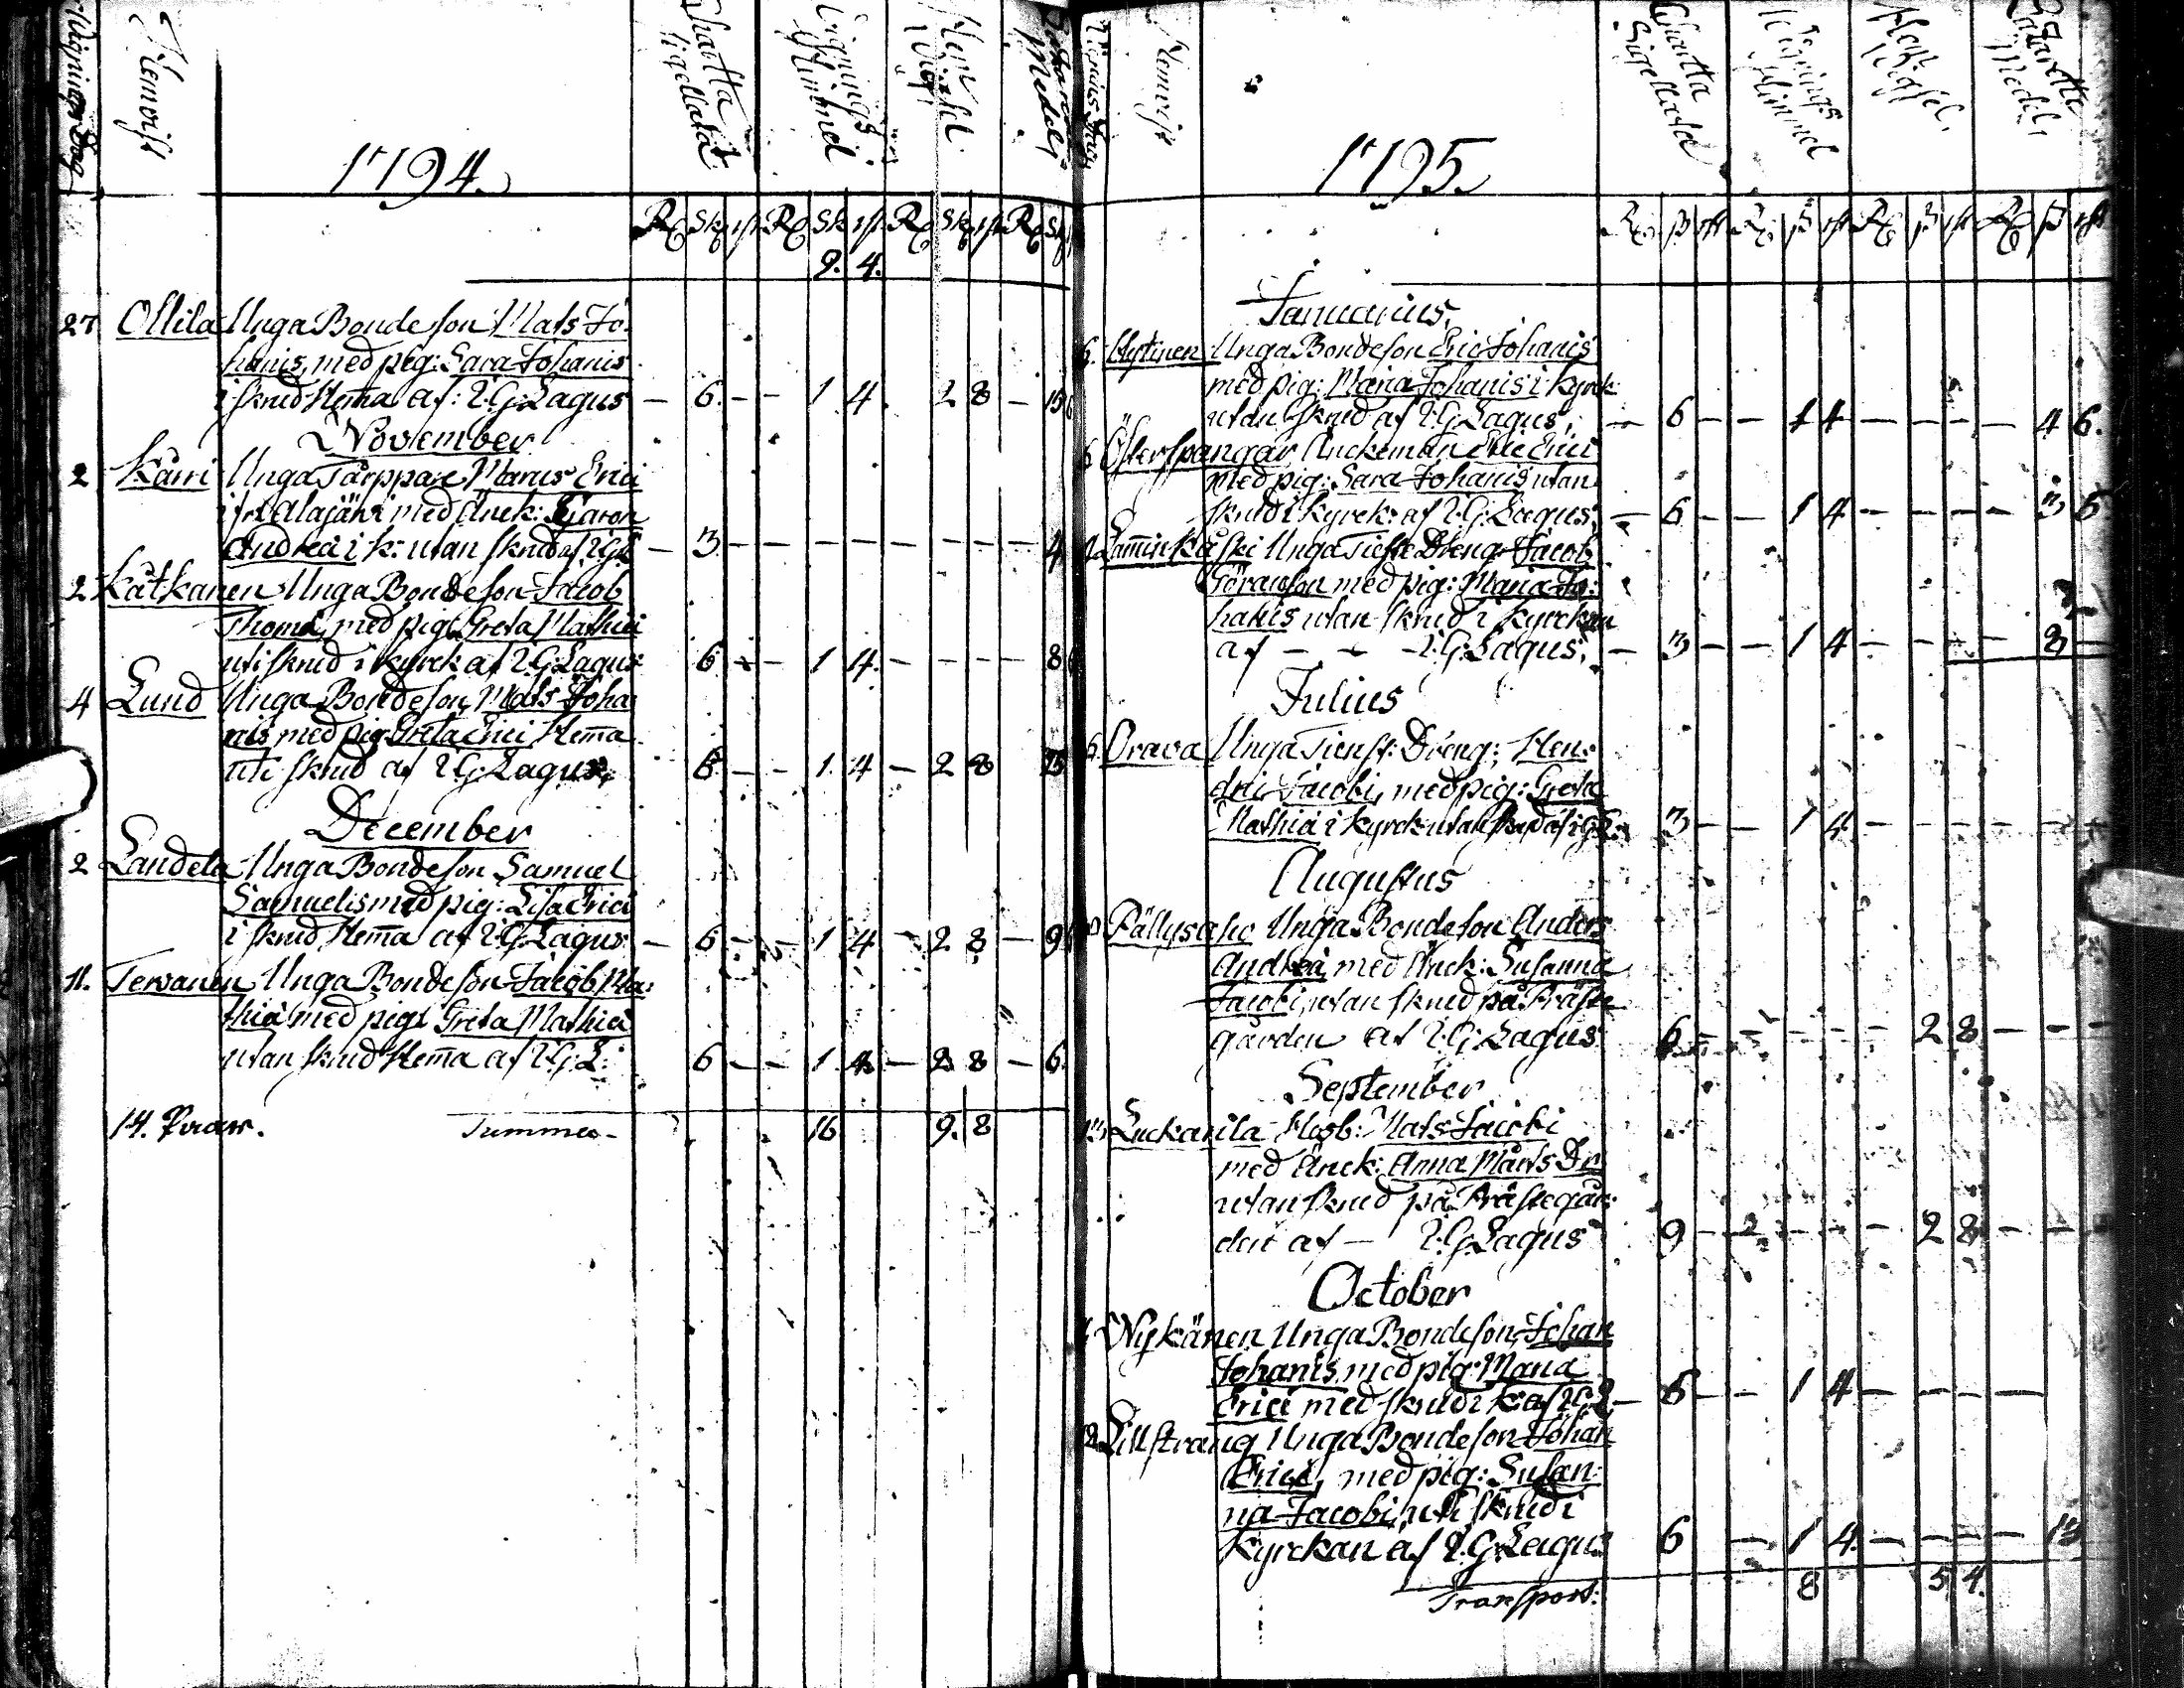 Wignings Dag
Hemvist
1794.
Charta Sigellata
Wignings
Hem
R Sk rst R Sk rst R Sk rst R Sk
9. 4.
27 Ollila Unga Bondeson Mats Jo-
hanis, med pig: Sara Johanis
i skrud Hema af: I:G:Lagus — 6. — — 1 4. 2 8 — 15
November
2 Karri Unga Torppare Marcus Erici
med Änck:
Andreæ i k: utan skrud af I:G:L — 3 — — — — — — — 4
2 Katkanen Unga Bondeson Jacob
Thomæ, med pig: Greta Mathiæ
uti skrud i kyrck af I:G:Lagus 6 — — 1 4. — — — — 8
4 Lund Unga Bondeson Mats Joha
nis med pig: Greta Erici Hema
uti skrud af I:G:Lagus, 6. — — 1. 4 — 2 8 15
December
2 Landela Unga Bondeson Samuel
Samuelis med pig: Lisa Erici
i skrud Hema af I:G:Lagus — 6 — — 1 4 — 2 8 — 9
11. Terwanen Unga Bondeson Jacob Ma:
thiæ med pig: Greta Mathiæ
utan skrud Hema af I:G:L: 6 — — 1 4 — 2 8 — 6.
14. Paar. Summa 16 9. 8
Hemvist
1795.
Charta Sigellata
Wignings
Januarius.
6. Hytinen Unga Bondeson Eric Johanis
med pig: Maria Johanis i kyrck
utan skrud af I:G:Lagus, — 6 — — 1 4 — — — — 4 6.
6 Österspangar Änckeman Eric Erici
med pig: Sara Johanis utan
skrud i kyrck: af I:G:Lagus, — 6 — — 1 4 — — — — 3 6
Unga Tienste Dreng: Jacob
Göransson med pig: Maria Jo:
hanis utan skrud i kyrckan
af — — I:G:Lagus, — 3 — — 1 4 — — — — 2 —
Julius
6 Orava Unga Tienst: Dreng: Hen:
dric Jacobi, med pig: Greta
Mathiæ i kyrck utan skrud af I:G:L: 3 — — 1 4 — — — —
Augustus
Pällysaho Unga Bondeson Anders
Andreæ, med Änck: Susanna
Jacobi, utan skrud på Präste
gården af I:G:Lagus 6 — — — — — 2 8 — — —
September
13 Luckarila Husb: Mats Jacobi
med Änck: Anna Mårts Dr
utan skrud på Prästegår:
den af — I:G:Lagus 9 — 2 — — — 2 8 — —
October
Nykänen Unga Bondeson, Johan
Johanis, med pig: Maria
Erici med skrud i k: af I:G:L — 6 — — 1 4 — — — —
Lillstrang Unga Bondeson Johan
Erici, med pig: Susan:
na Jacobi, uti skrud i
Kyrckan af I:G:Lagus 6 — 1 4. — — — — 13
Transport: 8 5 4.